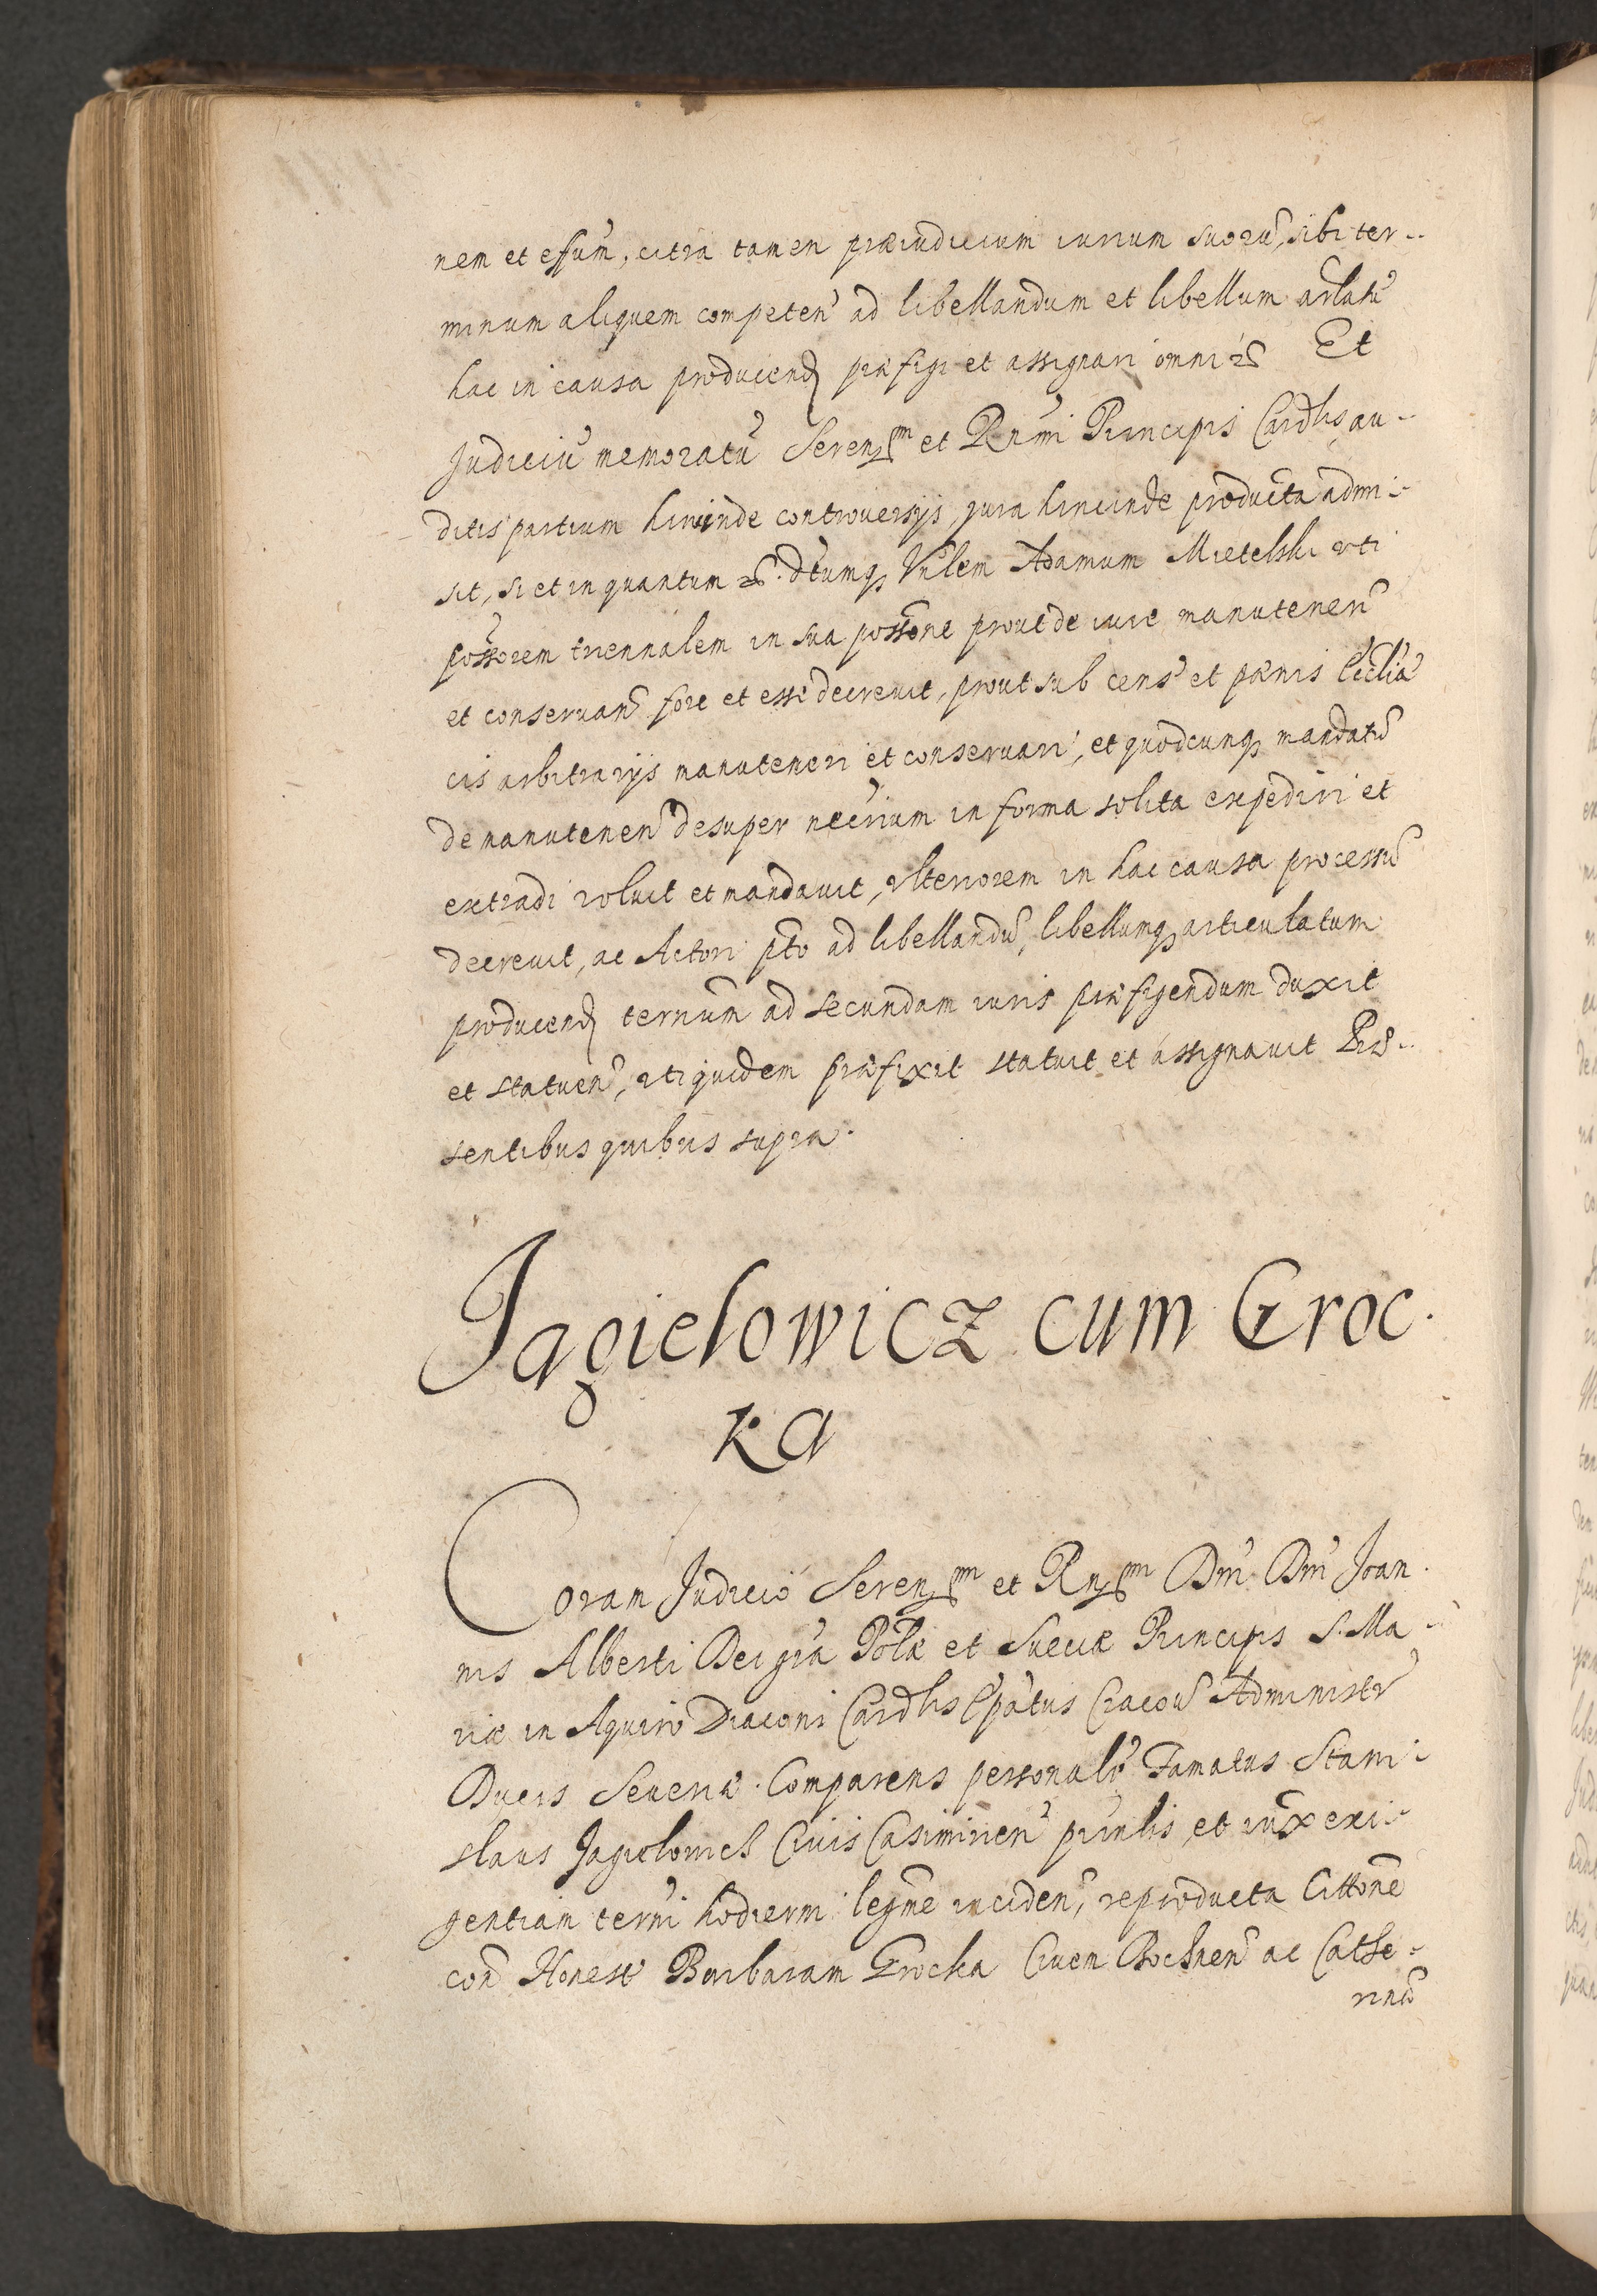 nem et essum̄, citra tamen præiudicium iurium suorū, sibi ter-
minum aliquem competen̄ ad libellandum et libellum arlatū
hac in causa producend præfigi et assignari omni Et
Judiciū memoratū Sereniss^m et Rnd̄mi Principis Cardlis au-
ditis partium hincinde controuersijs, iura hincinde producta admi-
sit, si et in quantum etc. dtumq Vnlem Adamum Mietelski vti
possorem triennalem in sua possone prout de iure manutenen̄
et conseruan̄ fore et esse decreuit, prout sub cens̄ et pænis Ecclia
cis arbitrarijs manuteneri et conseruari, et quodcunq mandatū
de manutenen̄ desuper nec̄rium in forma solita expediri et
extradi voluit et mandauit, vlteriorem in hac causa processū
decreuit, ac Actori pto ad libellandū, libellumq articulatum
producend ternum̄ ad secundam iuris præfigendum duxit
et statuen̄, vti quidem præfixit statuit et assignauit Præ-
sentibus quibus supra.
Jagielowicz cum Groc.
ka
Coram Judicio Sereniss^m et Rndss^m Dn̄i Dn̄i Joan.
nis Alberti Dei gra Polæ et Sueciæ Principis S. Ma-
riæ in Aquiro Diaconi Cardlis Epatus Cracou Administr
Ducis Seueriæ. Comparens personalr Famatus Stani-
slaus Jagielowicz Ciuis Casimirien̄ prn̄lis et iux exi-
gentiam tern̄i hodierni legme inciden̄, reproducta Cittone
con̄ Honest Barbaram Grocka Ciuem Bochnen̄ ac Cathe-
rinā